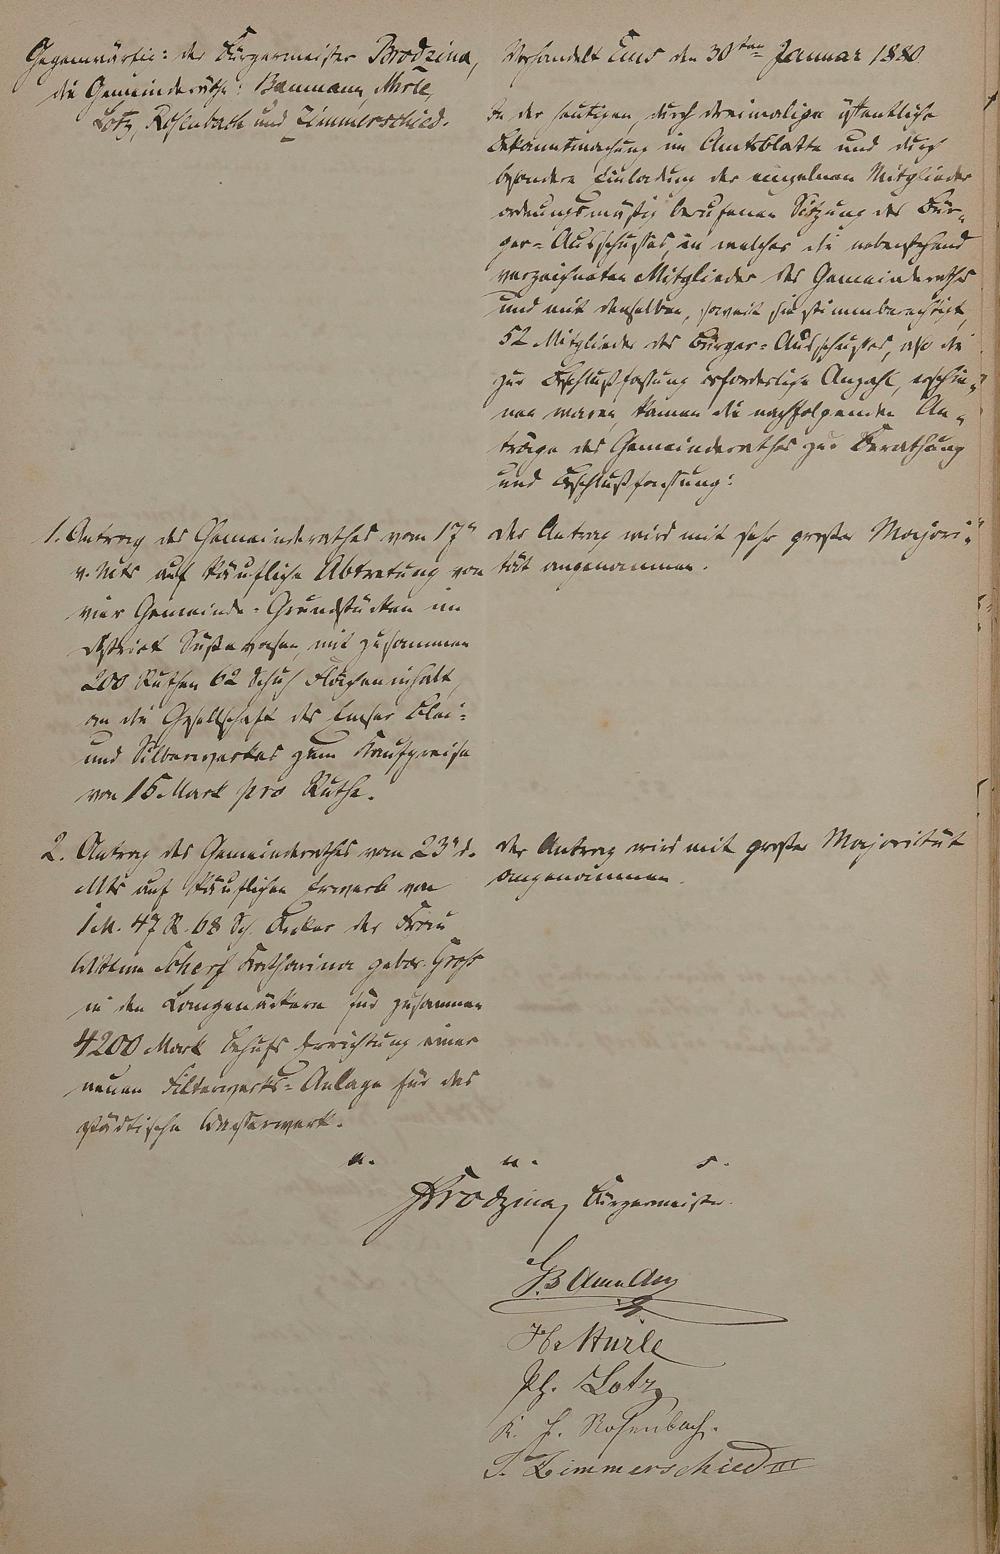 Gegenwärtig: der Bürgermeister Brodzina,
die Gemeinderäthe: Baumann, Mürle,
Lotz, Rosenbach und Zimmerschied.
Verhandelt Ems den 30ten Januar 1880
In der heutigen, durch dreimalige öffentliche
Bekanntmachung im Amtsblatte und durch
besondere Einladung der einzelnen Mitglieder
ordnungsmäßig berufenen Sitzung des Bür-
ger-Ausschusses, in welcher die nebenstehend
verzeichneten Mitglieder des Gemeinderaths
und mit denselben, soweit sie stimmberechtigt,
52 Mitglieder des Bürger-Ausschusses, also die
zur Beschlußfassung erforderliche Anzahl, erschie-
nen waren, kamen die nachfolgenden An-
träge des Gemeinderathes zur Berathung
und Beschlußfassung:
1. Antrag des Gemeinderathes vom 17"
v. Mts auf käufliche Abtretung von
vier Gemeinde-Grundstücken im
District Süßewasen, mit zusammen
200 Ruthen 62 Schuh Flächeninhalt,
an die Gesellschaft des Emser Blei-
und Silberwerkes zum Kaufpreise
von 15 Mark pro Ruthe.
Der Antrag wird mit sehr großer Majori-
tät angenommen.
2. Antrag des Gemeinderathes vom 23" d.
Mts auf käuflichen Erwerb von
1 M. 47 R. 68 Sch. Acker der Frau
Wittwe Scherf Katharina gebor. Groß
in den Langenäckern für zusammen
4200 Mark behufs Errichtung einer
neuen Filterwerks-Anlage für das
städtische Wasserwerk.
Der Antrag wird mit großer Majorität
angenommen.
a. u. s.
Brodzina, Bürgermeister.
Baumann
Hr Mürle
Ph. Lotz
K. F. Rosenbach.
Zimmerschied III